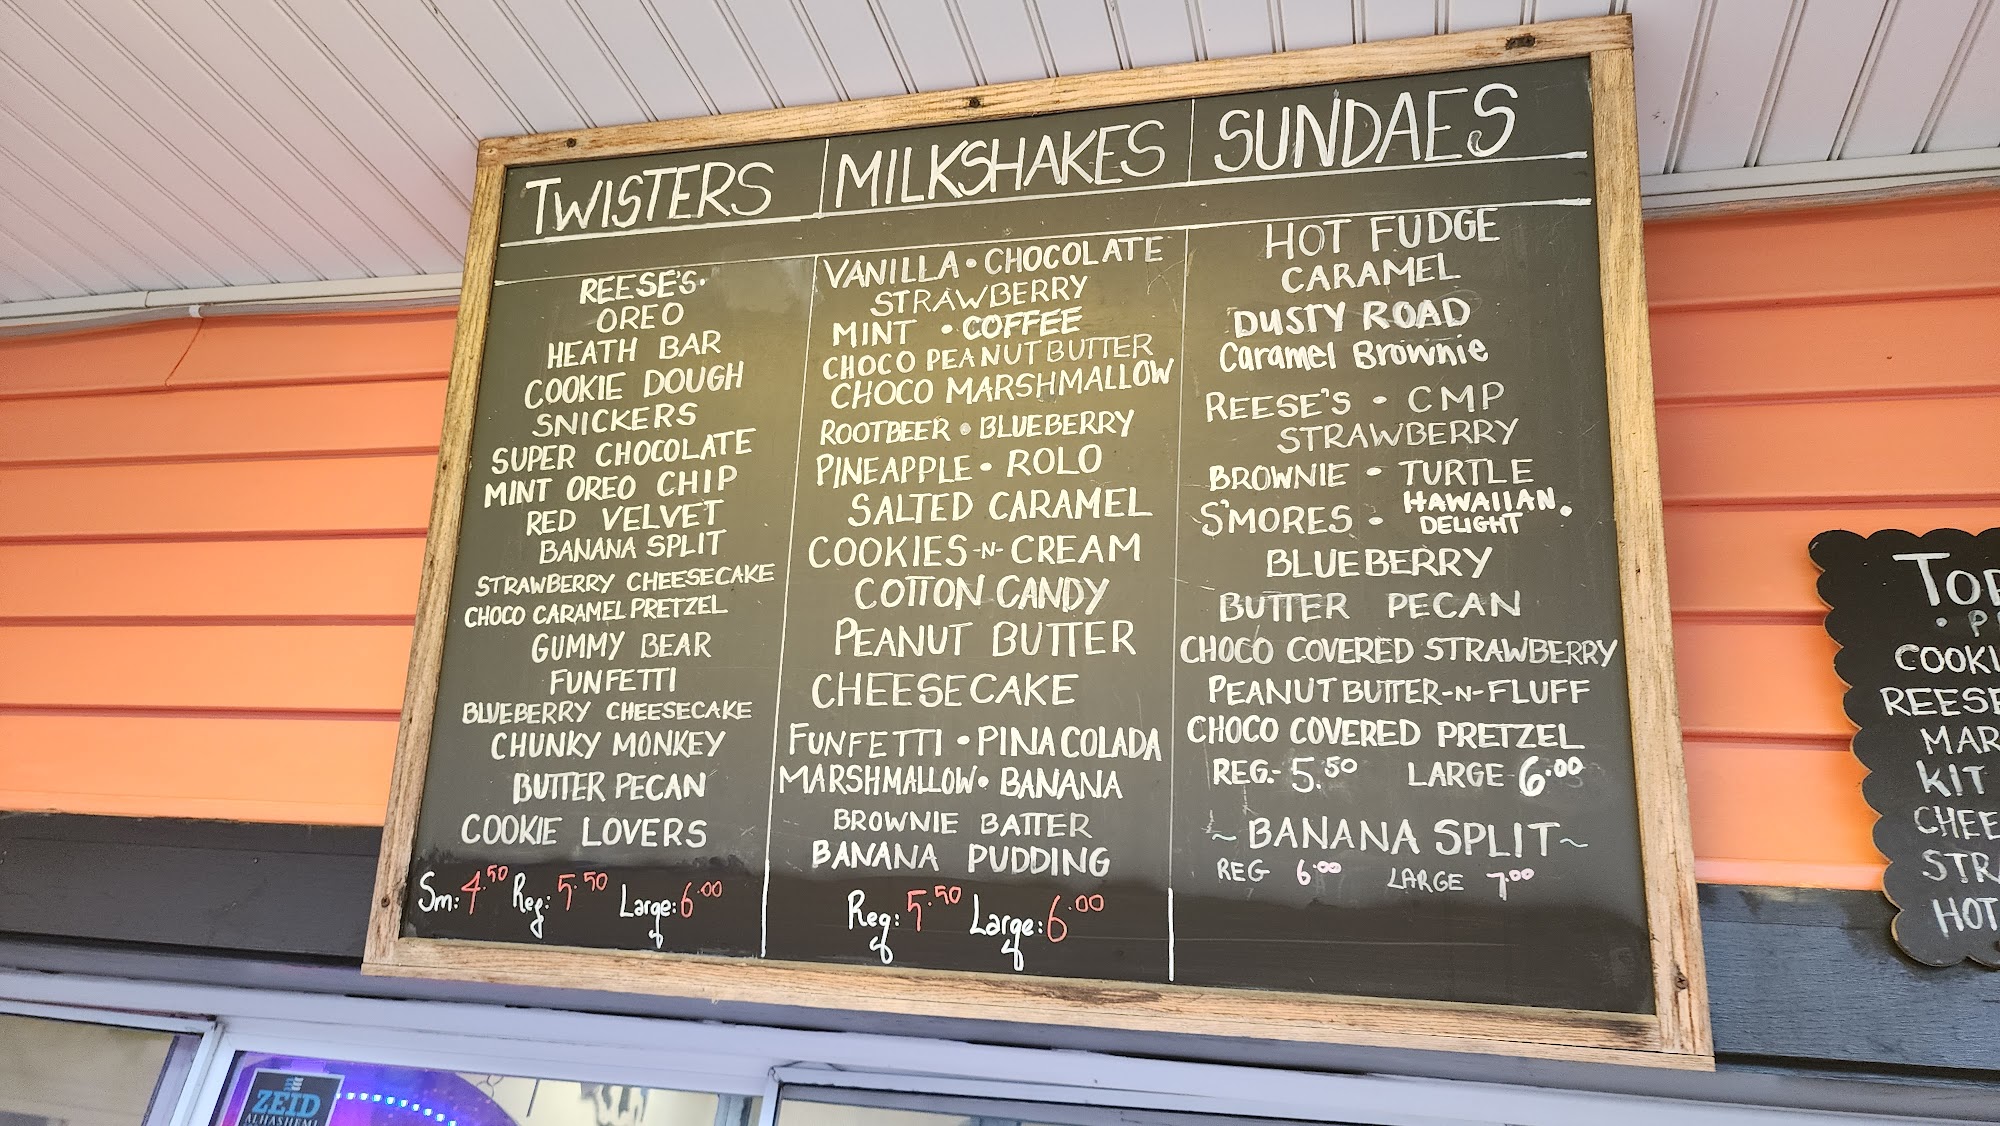 TWISTERS
REESE'S·
OREO
HEATH BAR
COOKIE DOUGH
SNICKERS
SUPER CHOCOLATE
MINT OREO CHIP
RED VELVET
BANANA SPLIT
STRAWBERRY CHEESECAKE
CHOCO CARAMEL PRETZEL
GUMMY BEAR
FUNFETTI
BLUEBERRY CHEESECAKE
CHUNKY MONKEY
BUTTER PECAN
COOKIE LOVERS
Sm: 4.50 Reg: 5.50 Large: 6.00
MILKSHAKES
VANILLA • CHOCOLATE
STRAWBERRY
MINT • COFFEE
CHOCO PEANUT BUTTER
CHOCO MARSHMALLOW
ROOTBEER • BLUEBERRY
PINEAPPLE • ROLO
SALTED CARAMEL
COOKIES -N- CREAM
COTTON CANDY
PEANUT BUTTER
CHEESECAKE
FUNFETTI • PINA COLADA
MARSHMALLOW • BANANA
BROWNIE BATTER
BANANA PUDDING
Reg: 5.50 Large: 6.00
SUNDAES
HOT FUDGE
CARAMEL
DUSTY ROAD
Caramel Brownie
REESE'S • CMP
STRAWBERRY
BROWNIE • TURTLE
S'MORES • HAWAIIAN DELIGHT •
BLUEBERRY
BUTTER PECAN
CHOCO COVERED STRAWBERRY
PEANUT BUTTER-N-FLUFF
CHOCO COVERED PRETZEL
REG.- 5.50 LARGE 6.00
~BANANA SPLIT~
REG 6.00 LARGE 7.00
TOP
• P
COOKI
REESE
MAR
KIT
CHEE
STRA
HOT
ZEID
ALHASHEMI